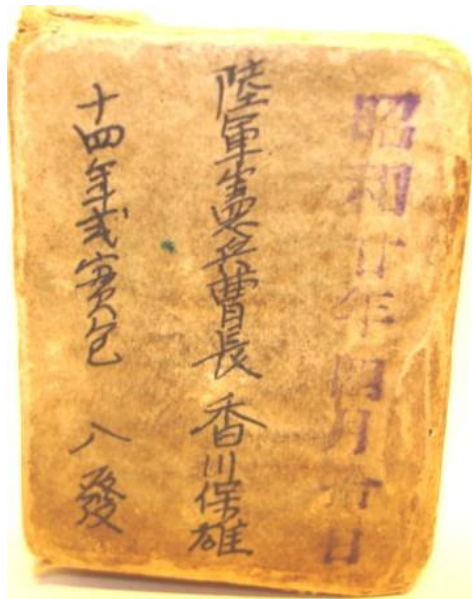 昭和廿年四月廿日
陸軍憲兵曹長 香川保雄
十四年式實包 八發